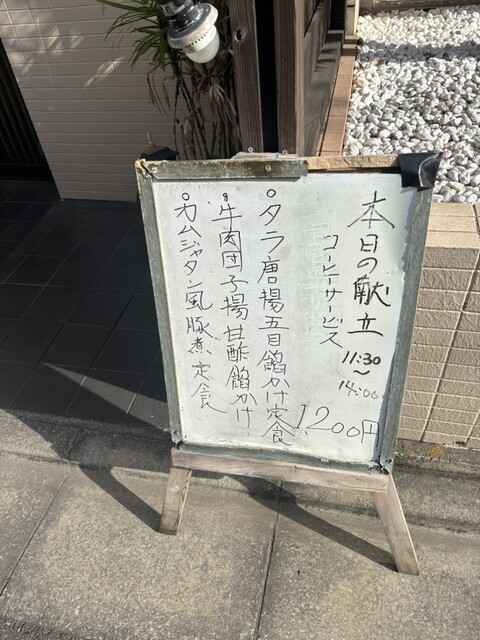 本日の献立 11:30〜14:00
コーヒーサービス
タラ唐揚五目餡かけ定食
牛肉団子揚甘酢餡かけ
カムジャタン風豚煮定食
1,200円